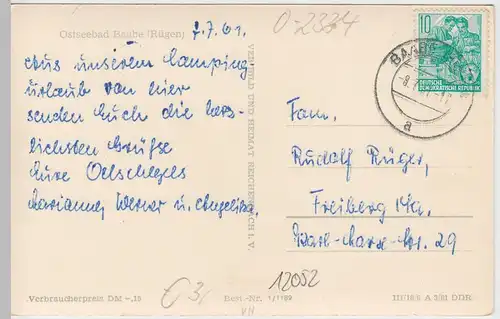 Ostseebad Baabe (Rügen)
7.7.61.
O-2334
Aus unserem Camping
urlaub von hier
senden Euch die herz
lichsten Grüße
Eure Oelschlegels
Marianne, Werner u. Angelika.
VERLAG BILD UND HEIMAT REICHENBACH i. V.
10
DEUTSCHE
DEMOKRATISCHE REPUBLIK
BAABE
a
Fam.
Rudolf Rüger,
Freiberg i/Sa.
Karl-Marx-Str. 29
12052
Verbraucherpreis DM -,18
Best.-Nr. 1/1189
A 3/61 DDR
VII